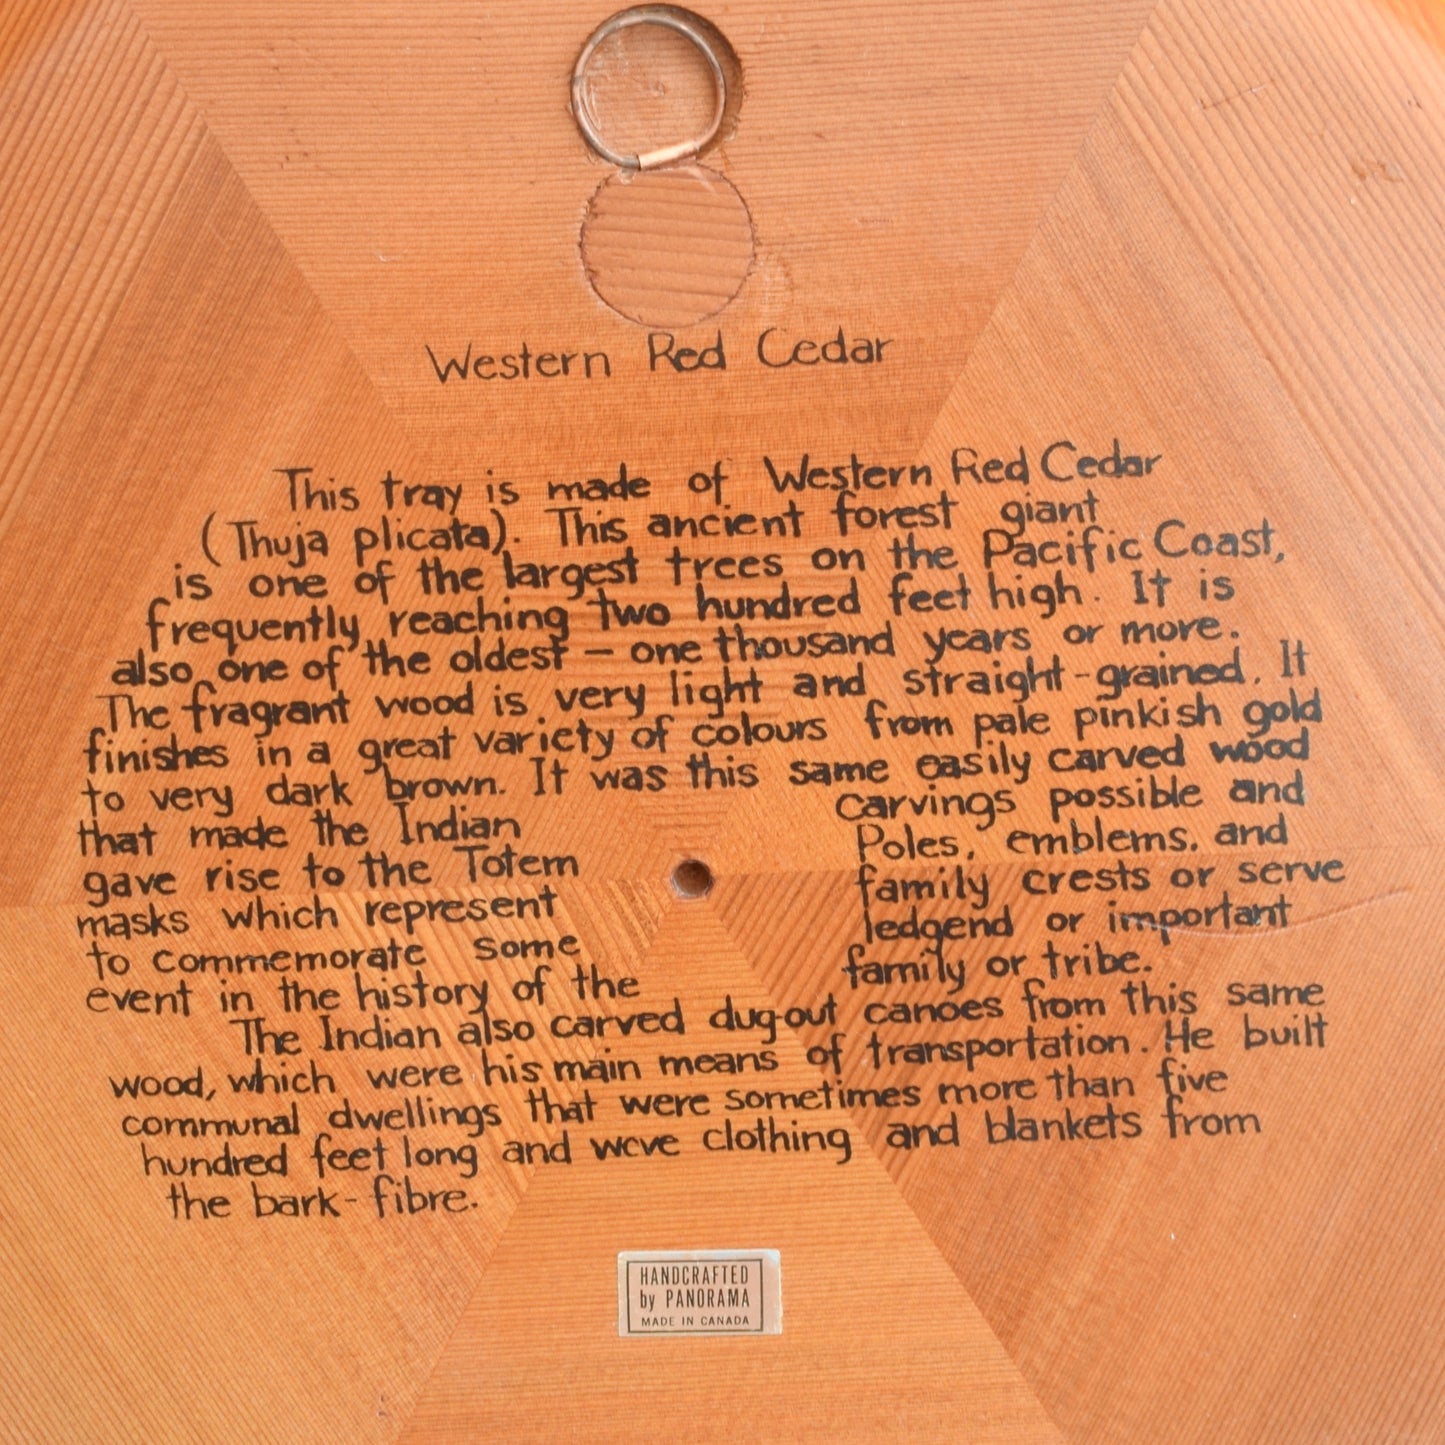 Western Red Cedar
This tray is made of Western Red Cedar
(Thuja plicata). This ancient forest giant
is one of the largest trees on the Pacific Coast,
frequently reaching two hundred feet high. It is
also one of the oldest - one thousand years or more.
The fragrant wood is very light and straight-grained. It
finishes in a great variety of colours from pale pinkish gold
to very dark brown. It was this same easily carved wood
that made the Indian carvings possible and
gave rise to the Totem Poles, emblems, and
masks which represent family crests or serve
to commemorate some ledgend or important
event in the history of the family or tribe.
The Indian also carved dug-out canoes from this same
wood, which were his main means of transportation. He built
communal dwellings that were sometimes more than five
hundred feet long and wove clothing and blankets from
the bark-fibre.
HANDCRAFTED
by PANORAMA
MADE IN CANADA